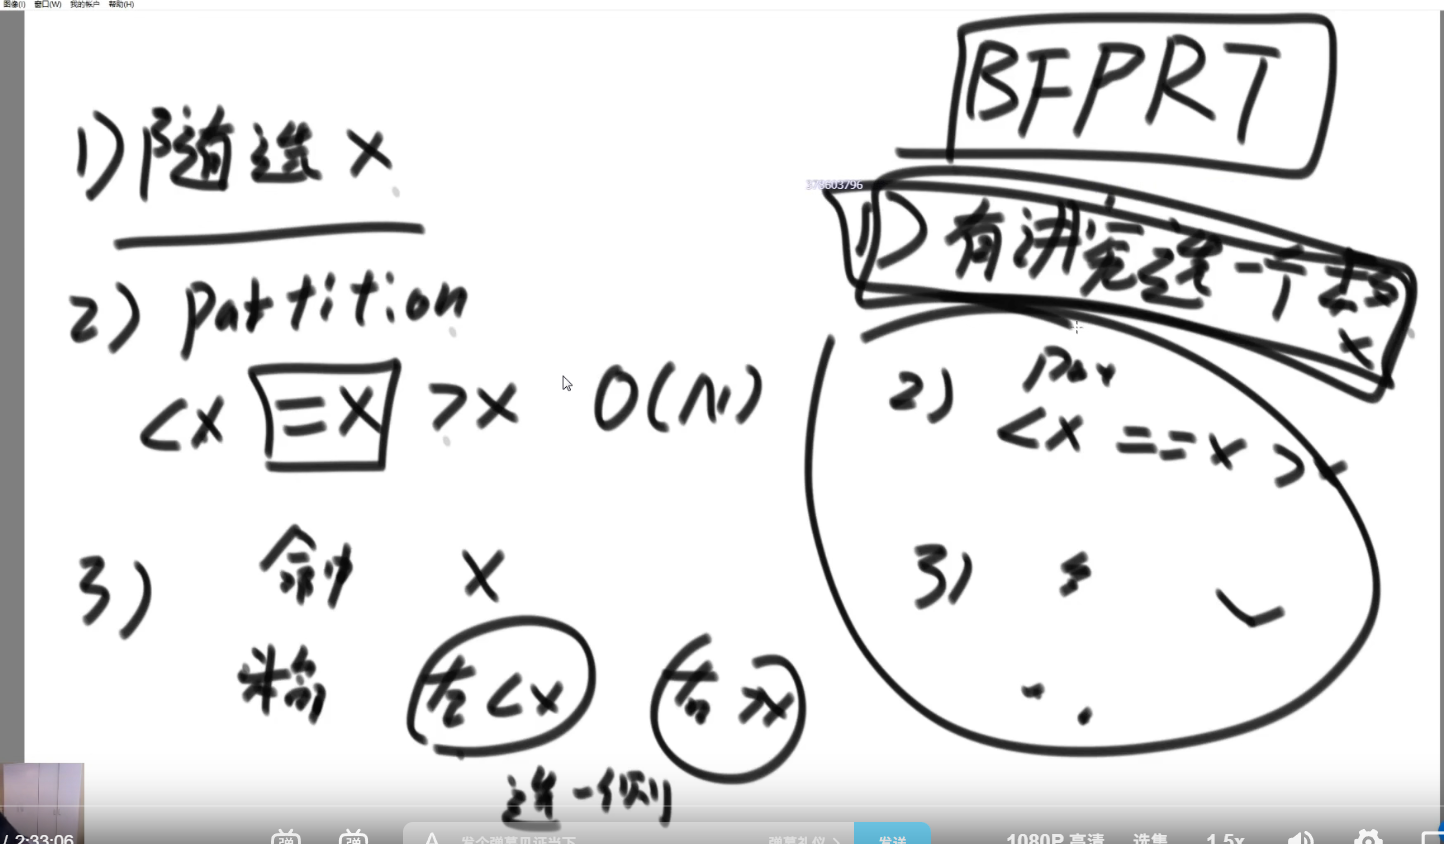 图像(I) 窗口(W) 我的帐户 帮助(H)
1) 随选 X
2) partition
<X =X >X O(N)
3) 命中 X
左 <X 右 >X
选一侧
BFPRT
378603796
1) 有讲究选一个
X
2) par
<X ==X >X
3)
/ 2:33:06 弹 弹 发个弹幕见证当下 弹幕礼仪 > 发送 1080P 高清 选集 1.5x